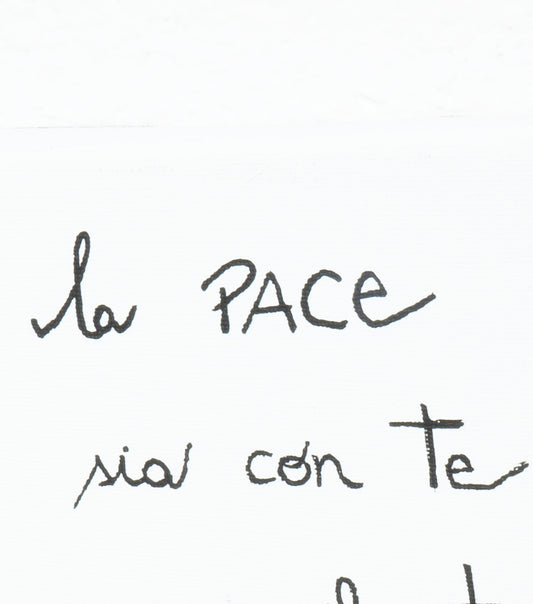 la PACe
sia con te